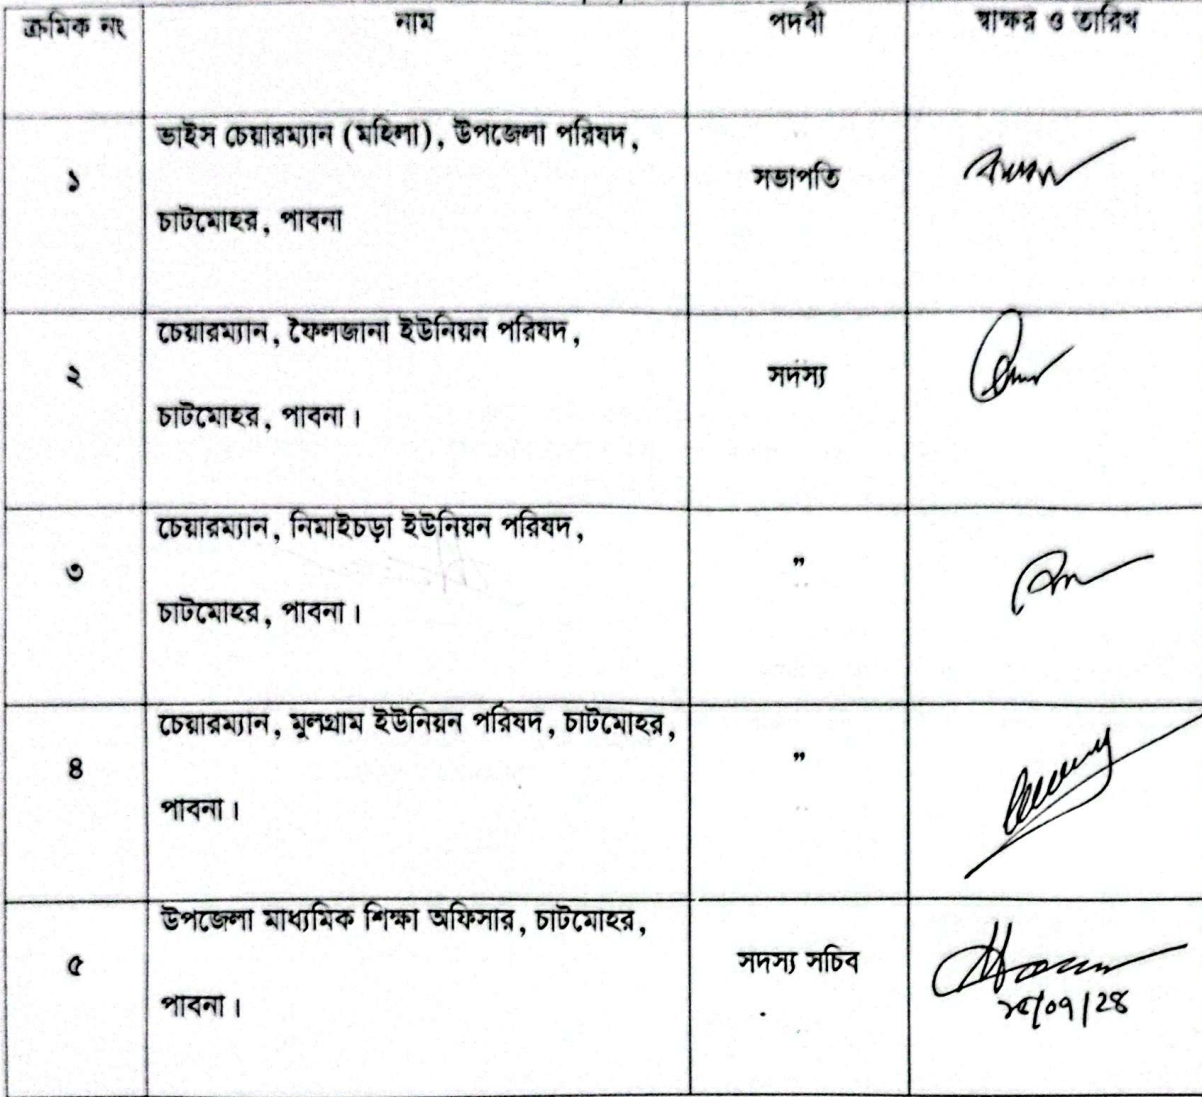 ক্রমিক নং নাম পদবী স্বাক্ষর ও তারিখ
ভাইস চেয়ারম্যান (মহিলা), উপজেলা পরিষদ,
১ সভাপতি
চাটমোহর, পাবনা
চেয়ারম্যান, ফৈলজানা ইউনিয়ন পরিষদ,
২ সদস্য
চাটমোহর, পাবনা।
চেয়ারম্যান, নিমাইচড়া ইউনিয়ন পরিষদ,
৩ ”
চাটমোহর, পাবনা।
চেয়ারম্যান, মুলগ্রাম ইউনিয়ন পরিষদ, চাটমোহর,
৪ ”
পাবনা।
উপজেলা মাধ্যমিক শিক্ষা অফিসার, চাটমোহর,
৫ সদস্য সচিব
পাবনা।